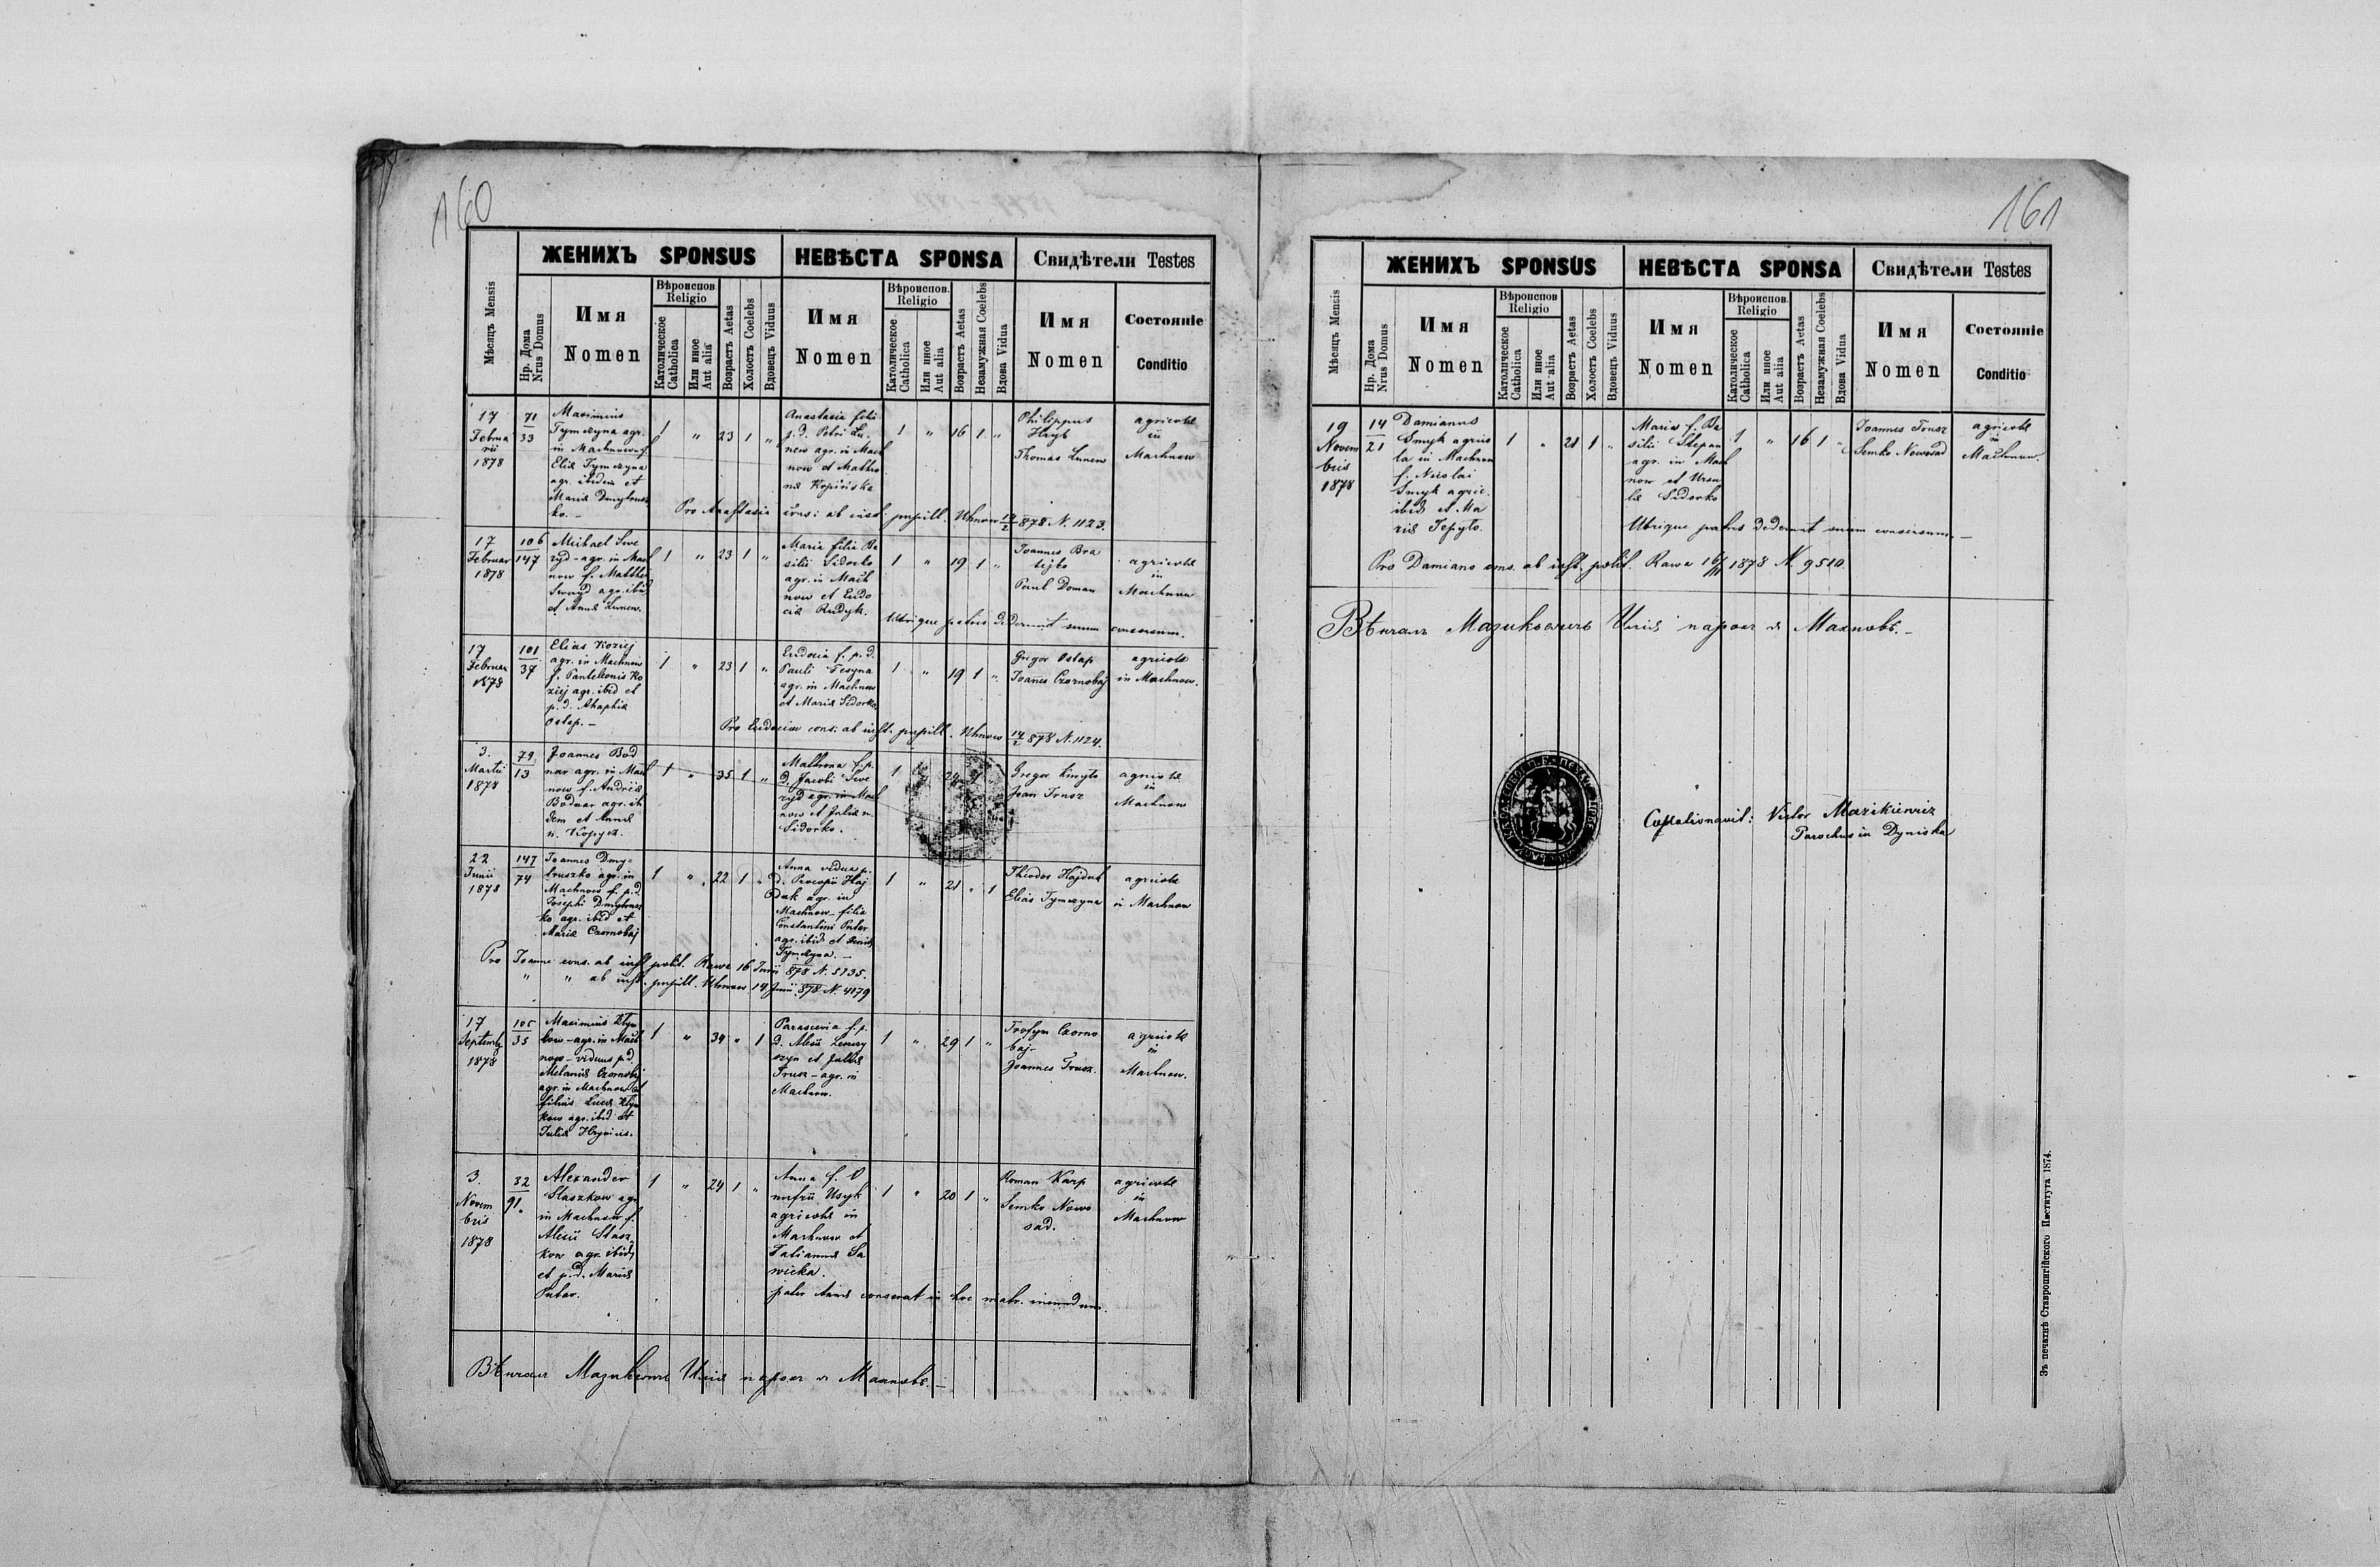 160
ЖЕНИХЪ SPONSUS
НЕВѢСТА SPONSA
Свидѣтели Testes
Мѣсяцъ Mensis
Нр. Дома
Nrus Domus
Имя
Nomen
Вѣроиспов.
Religio
Католическое
Catholica
Или иное
Aut alia
Возрастъ Aetas
Холостъ Coelebs
Вдовецъ Viduus
Имя
Nomen
Вѣроиспов.
Religio
Католическое
Catholica
Или иное
Aut alia
Возрастъ Aetas
Незамужная Coelebs
Вдова Vidua
Имя
Nomen
Состоянiе
Conditio
17
Februa
rii
1878
71
33
Maximus
Tymczyna agr.
in Machnow f.
Eliæ Tymczyna
agr. ibidem et
Mariæ Dmytrusz
ko.
1 " 23 1 "
Anastasia fili
p. d. Petri Lu
new agr. in Mach
now et Mathro
næ Kopinska
1 " 16 1 "
Philippus
Hryb
Thomas Lunew
agricolæ
in
Machnow
Pro Anastasia cons: ab inst. pupill. Uhnow 14/2 878 N. 1123.
17
Februar
1878
106
147
Michael Swe
ryd - agr. in Mach
now f. Matthei
Sweryd agr. ibid
et Annæ Lunew.
1 " 23 1 "
Maria filia Ba
silii Sidorko
agr. in Mach
now et Eudo
ciæ Rudyk.
1 " 19 1 "
Joannes Bra
tejko
Paul Doman
agricolæ
in
Machnow
Utrique patres dederunt suum consensum.
17
Februar
1878
101
37
Elias Koziej
agr. in Machnow
f. Panteleonis Ko
ziej agr. ibid et
p. d. Ahaphiæ
Ostap. -
1 " 23 1 "
Eudocia f. p. d.
Pauli Tesyna
agr. in Machnow
et Mariæ Sidorko
1 " 19 1 "
Grigor Ostap
Joanes Czornobaj
agricolæ
in Machnow.
Pro Eudocia cons: ab inst. pupill. Uhnow 14/2 878 N. 1124.
3.
Martii
1878
79
13
Joannes Bod
nar agr. in Mach
now f. Andreæ
Bodnar agr. ib
dem et Annæ
n. Kopycz.
1 " 35 1 "
Mathrona f. p.
d. Jacobi Swe
ryd agr. in Mach
now et Juliæ n.
Sidorko.
1 " 24 1 "
Gregor Kmyta
Joan Trusz
agricolæ
in
Machnow
22
Junii
1878
147
74
Joannes Dmy
truszko agr. in
Machnow f. p. d.
Josephi Dmytrusz
ko agr. ibid et
Mariæ Czornobaj
1 " 22 1 "
Anna vidua p.
d. Procopii Haj
duk agr. in
Machnow - filia
Constantini Puter
agr. ibid. et
Tymczyna. -
1 " 21 " 1
Theodor Hajduk
Elias Tymczyna
agricolæ
in Machnow
Pro Joanne cons. ab inst. polit. Rawa 16 Junii 878 N. 5735.
" " ab inst. pupill. Uhnow 14 Junii 878 N. 4179
17
Septemb
1878
105
35
Maximus Klym
kow - agr. in Mach
now - viduus p. d.
Melaniæ Czornobaj
agr. in Machnow et
filius Lucæ Klym
kow agr. ibid et
Juliæ Hryncis.
1 " 34 " 1
Parascevia f. p.
d. Alexii Lewczy
szyn et Juliæ
Trusz - agr. in
Machnow.
1 " 29 1 "
Trofym Czorno
baj -
Joannes Trusz.
agricolæ
in
Machnow.
3.
Novem
bris
1878
32
91.
Alexander
Staszkow agr.
in Machnow f.
Alexii Stasz
kow agr. ibid.
et p. d. Mariæ
Puter.
1 " 24 1 "
Anna f. O
nufrii Usyk
agricolæ in
Machnow et
Tatiannæ Sa
wicka.
1 " 20 1 "
Roman Karp
Semko Nowo
sad.
agricolæ
in
Machnow
pater Annæ consensit in hoc matr. ineundum.
Вѣнчалъ Мазикевичъ Илія парохъ въ Махновѣ. -
161
ЖЕНИХЪ SPONSUS
НЕВѢСТА SPONSA
Свидѣтели Testes
Мѣсяцъ Mensis
Нр. Дома
Nrus Domus
Имя
Nomen
Вѣроиспов
Religio
Католическое
Catholica
Или иное
Aut alia
Возрастъ Aetas
Холостъ Coelebs
Вдовецъ Viduus
Имя
Nomen
Вѣроиспов.
Religio
Католическое
Catholica
Или иное
Aut alia
Возрастъ Aetas
Незамужная Coelebs
Вдова Vidua
Имя
Nomen
Состоянiе
Conditio
19
Novem
bris
1878
14
21
Damianus
Smyk agrico
la in Machnow
f. Nicolai
Smyk agric.
ibid. et Ma
riæ Tepyto.
1 " 21 1 "
Maria f. Ba
silii Stepan
agr. in Mach
now et Ursu
læ Sidorko
1 " 16 1 "
Joannes Trusz
Semko Nowosad
agricolæ
in
Machnow.
Utrique patres dederunt suum consensum. -
Pro Damiano cons. ab inst. polit. Rawa 16/11 1878 N. 9510.
Вѣнчалъ Мазикевичъ Илія парохъ въ Махновѣ. -
Copulationavit: Victor Mazikiewicz
Parochus in Dyniska
Зъ печатнѣ Ставропигійского Института 1874.